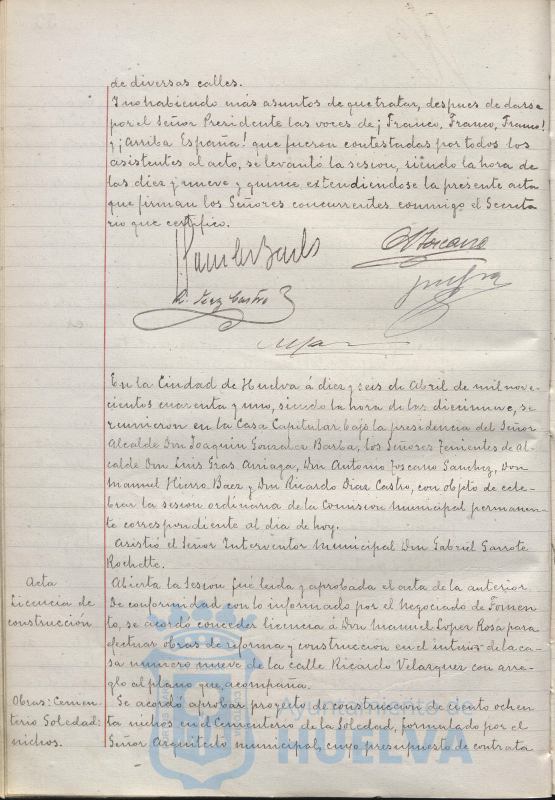 de diversas calles.
Y no habiendo más asuntos de que tratar, despues de darse
por el Señor Presidente las voces de ¡Franco, Franco, Franco!
y ¡Arriba España! que fueron contestadas por todos los
asistentes al acto, se levantó la sesion, siendo la hora de
las diez y nueve y quince extendiendose la presente acta
que firman los Señores concurrentes conmigo el Secreta
rio que certifico.
R. Diaz Castro
En la Ciudad de Huelva á diez y seis de Abril de mil nove-
cientos cuarenta y uno, siendo la hora de las diecinueve, se
reunieron en la Casa Capitular bajo la presidencia del Señor
Alcalde Don Joaquin Gonzalez Barba, los Señores Tenientes de Al-
calde Don Luis Gras Arriaga, Don Antonio Toscano Sanchez, Don
Manuel Hierro Baez y Don Ricardo Diaz Castro, con objeto de cele-
brar la sesion ordinaria de la Comision Municipal permanen-
te correspondiente al dia de hoy.
Asistió el Señor Interventor Municipal Don Gabriel Garrote
Rochette.
Acta
Abierta la sesion fué leida y aprobada el acta de la anterior
Licencia de construcción
De conformidad con lo informado por el Negociado de Fomen-
to, se acordó conceder licencia á Don Manuel Lopez Rosa para
efectuar obras de reforma y construccion en el interior de la ca-
sa numero nueve de la calle Ricardo Velazquez con arre-
glo al plano que acompaña.
Obras: Cemen-
terio Soledad:
nichos.
Se acordó aprobar proyecto de construccion de ciento ochen
ta nichos en el Cementerio de la Soledad, formulado por el
Señor Arquitecto municipal, cuyo presupuesto de contrata
Ayuntamiento de
HUELVA